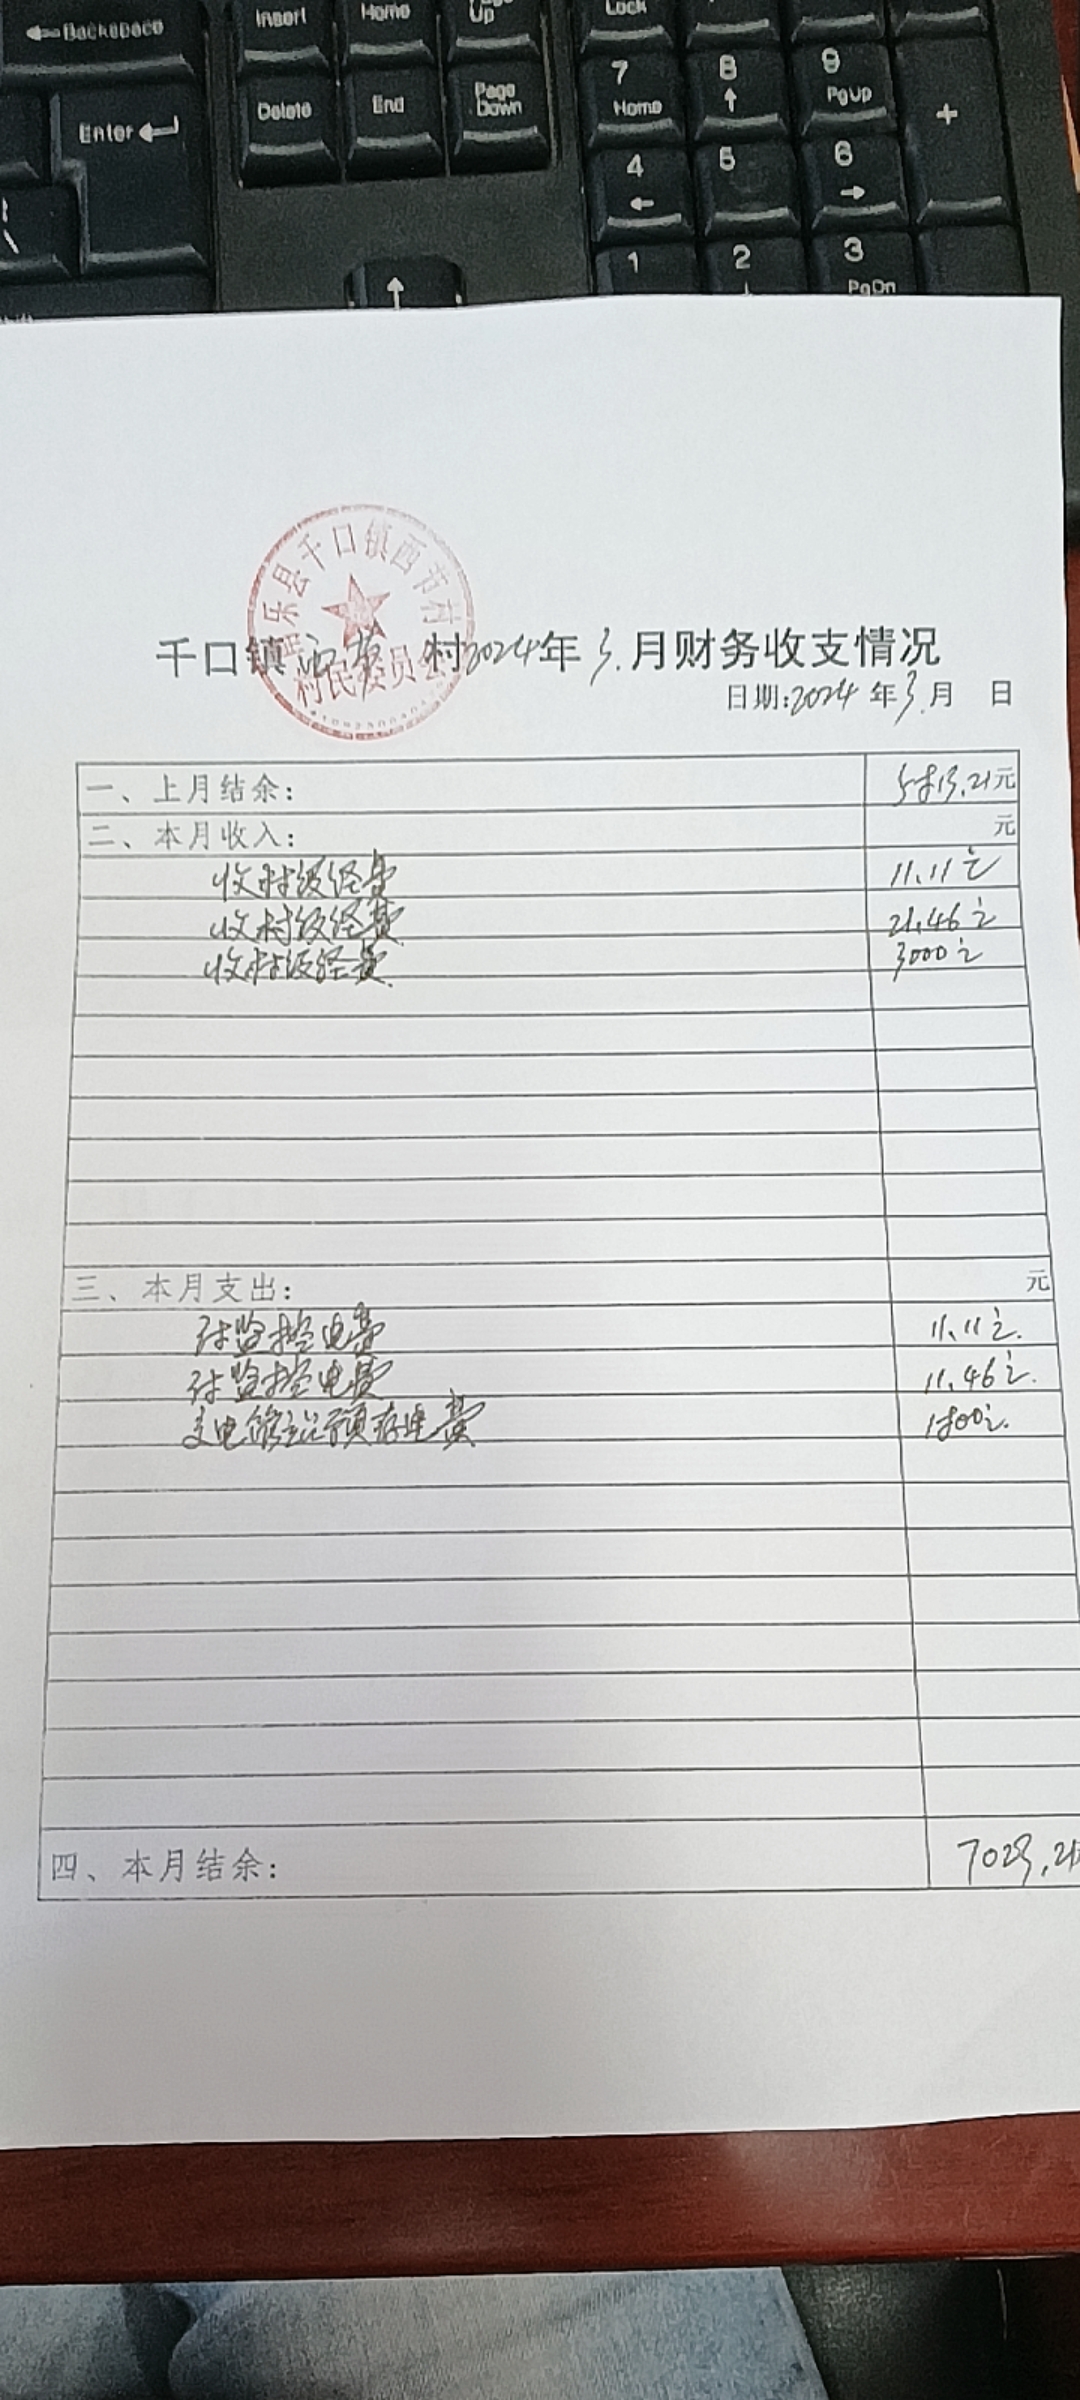 Backspace
Insert
Home
Up
Lock
Enter
Delete
End
Page Down
7 Home
8
9 PgUp
+
4
5
6
1
2
3 PgDn
南乐县千口镇西节村
村民委员会
千口镇西节村2024年3月财务收支情况
日期:2024年3月 日
一、上月结余: 5813.21元
二、本月收入: 元
收村级经费 11.11元
收村级经费 21.46元
收村级经费 3000元
三、本月支出: 元
付监控电费 11.11元.
付监控电费 11.46元.
支电管站预存电费 1800元.
四、本月结余: 7023.21